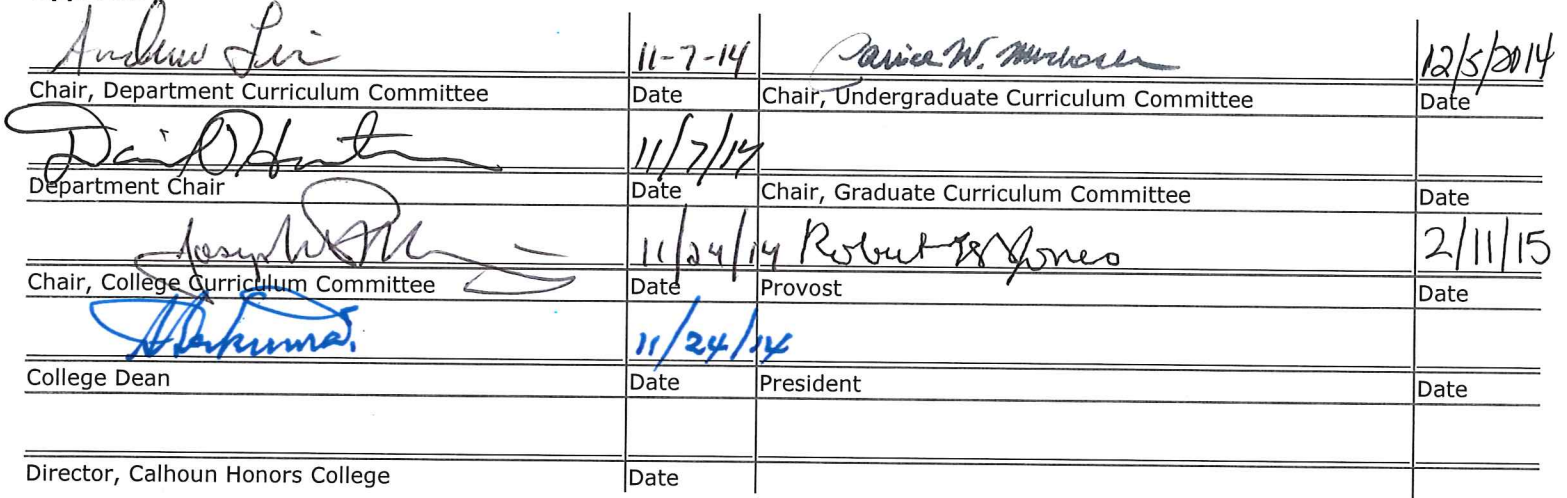 Andrew 11-7-14 Janice W. 12/5/2014
Chair, Department Curriculum Committee Date Chair, Undergraduate Curriculum Committee Date
11/7/14
Department Chair Date Chair, Graduate Curriculum Committee Date
Joseph 11/24/14 Robert Jones 2/11/15
Chair, College Curriculum Committee Date Provost Date
11/24/14
College Dean Date President Date
Director, Calhoun Honors College Date